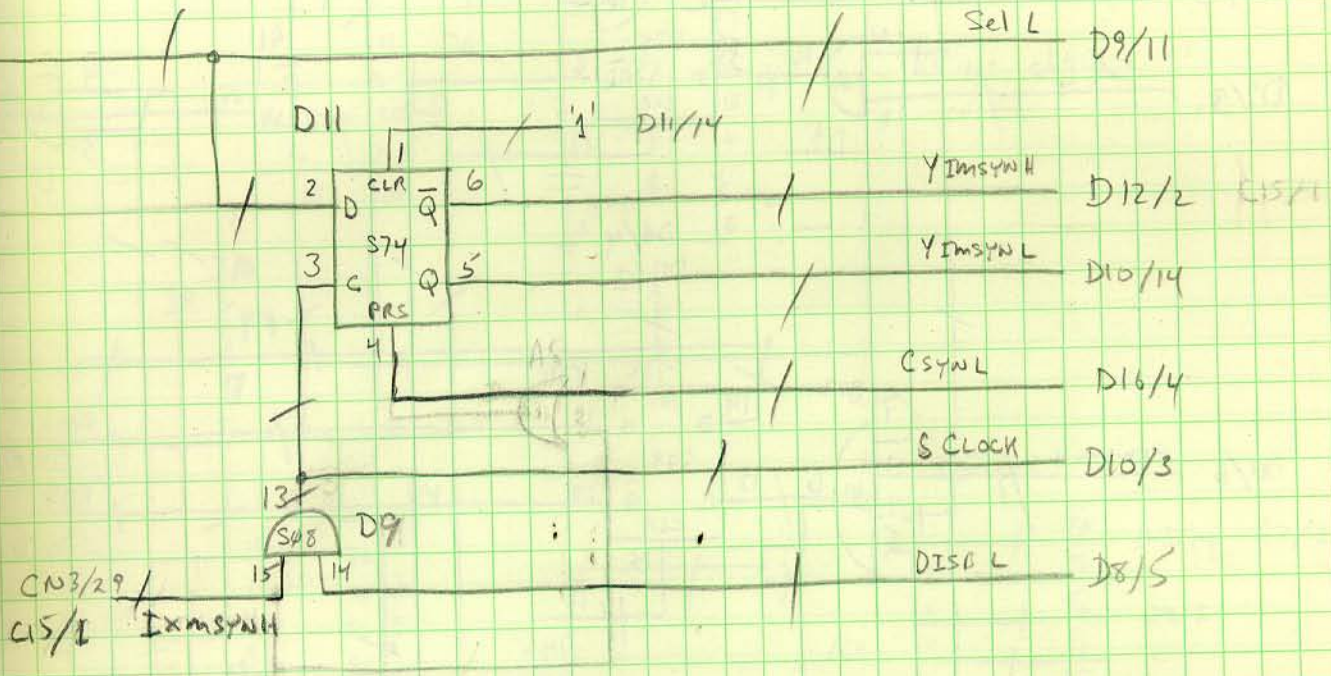 Sel L D9/11
D11 '1' D11/14
1
2 CLR 6 YIMSYNH D12/2 C15/1
D Q
S74
3 C Q 5 YIMSYNL D10/14
PRS
4
A5
CSYNL D16/4
S CLOCK D10/3
13
S48 D9
15 14 DISB L D8/5
CN3/29
C15/1 IXMSYNH